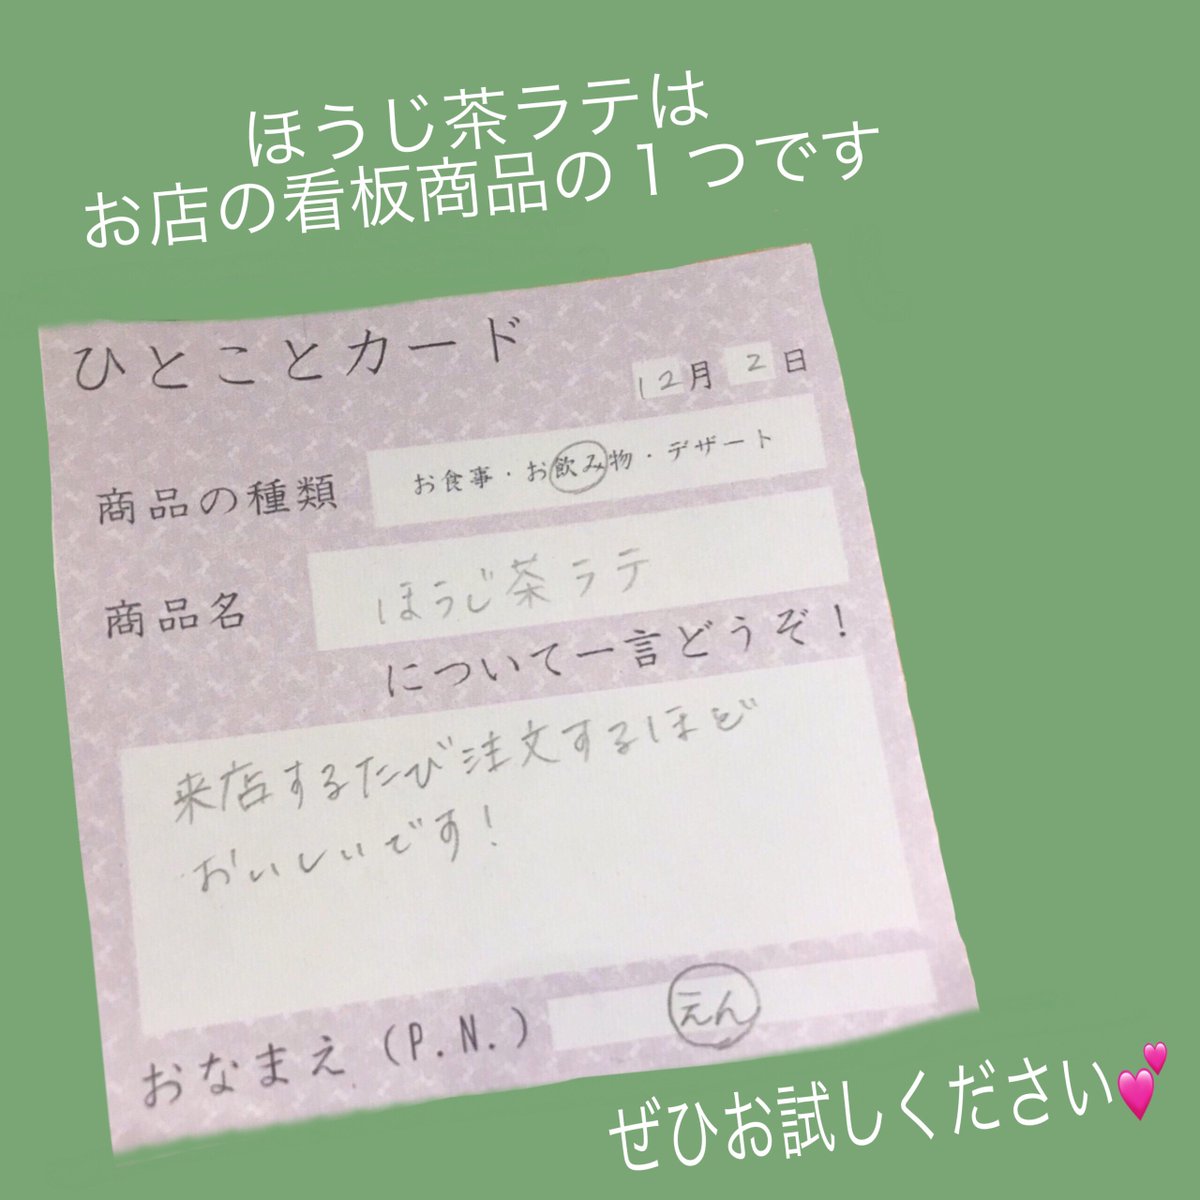 ほうじ茶ラテは
お店の看板商品の１つです
ひとことカード
12月 2日
商品の種類 お食事・お飲み物・デザート
商品名 ほうじ茶ラテ
について一言どうぞ！
来店するたび注文するほど
おいしいです！
おなまえ（P.N.） えん
ぜひお試しください💕